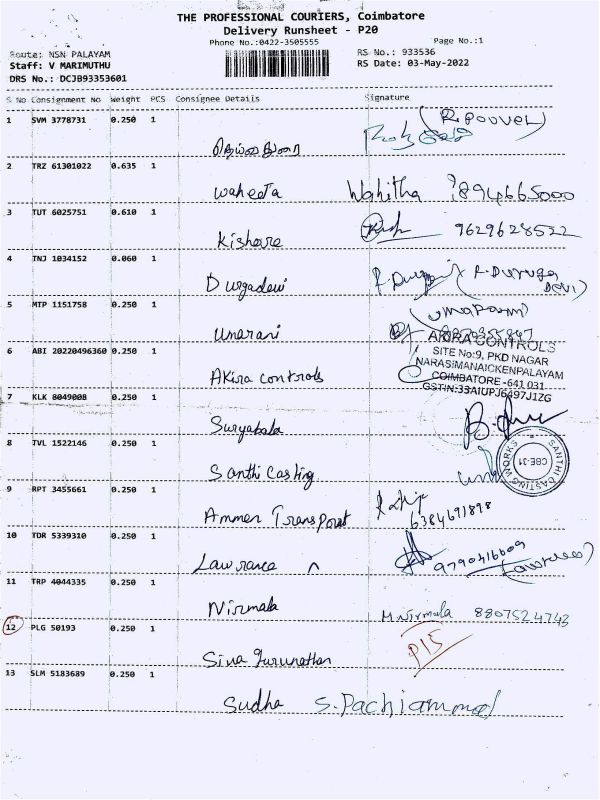 THE PROFESSIONAL COURIERS, Coimbatore
Delivery Runsheet - P20
Phone No.:0422-3505555
Page No.:1
Route: NSN PALAYAM
RS No.: 933536
Staff: V MARIMUTHU
RS Date: 03-May-2022
DRS No.: DCJB93353601
S No Consignment No Weight PCS Consignee Details Signature
1 SVM 3778731 0.250 1
2 TRZ 61301022 0.635 1
Waheeta Wahitha 894665000
3 TUT 6025751 0.610 1
Kishore 9629628522
4 TNJ 1034152 0.060 1
Durgadevi
5 MTP 1151758 0.250 1
Umarani
6 ABI 20220496360 0.250 1
Akira controls
AKIRA CONTROLS
SITE No:9, PKD NAGAR
NARASIMANAICKENPALAYAM
COIMBATORE -641 031
GSTIN:33AIUPJ6497J1ZG
7 KLK 8049008 0.250 1
Suryakala
8 TVL 1522146 0.250 1
Santhi Casting
SANTHI CASTING WORKS
CBE-31
9 RPT 3455661 0.250 1
Ammen Transport 6384691898
10 TDR 5339310 0.250 1
Lawrance 9790416609
11 TRP 4044335 0.250 1
Nirmala M.Nirmala 8807524743
12 PLG 50193 0.250 1
P15
Siva Gurunathan
13 SLM 5183689 0.250 1
Sudha S.Pachiammal